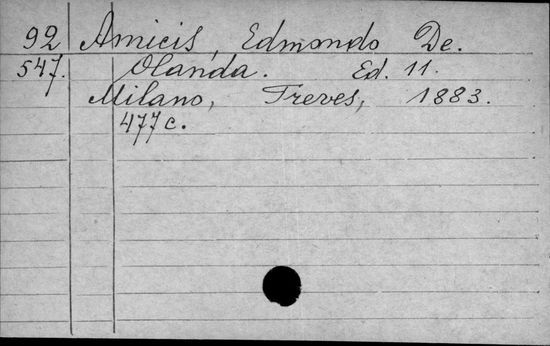 92 Amicis, Edmondo De.
547. Olanda. Ed. 11.
Milano, Treves, 1883.
477 c.